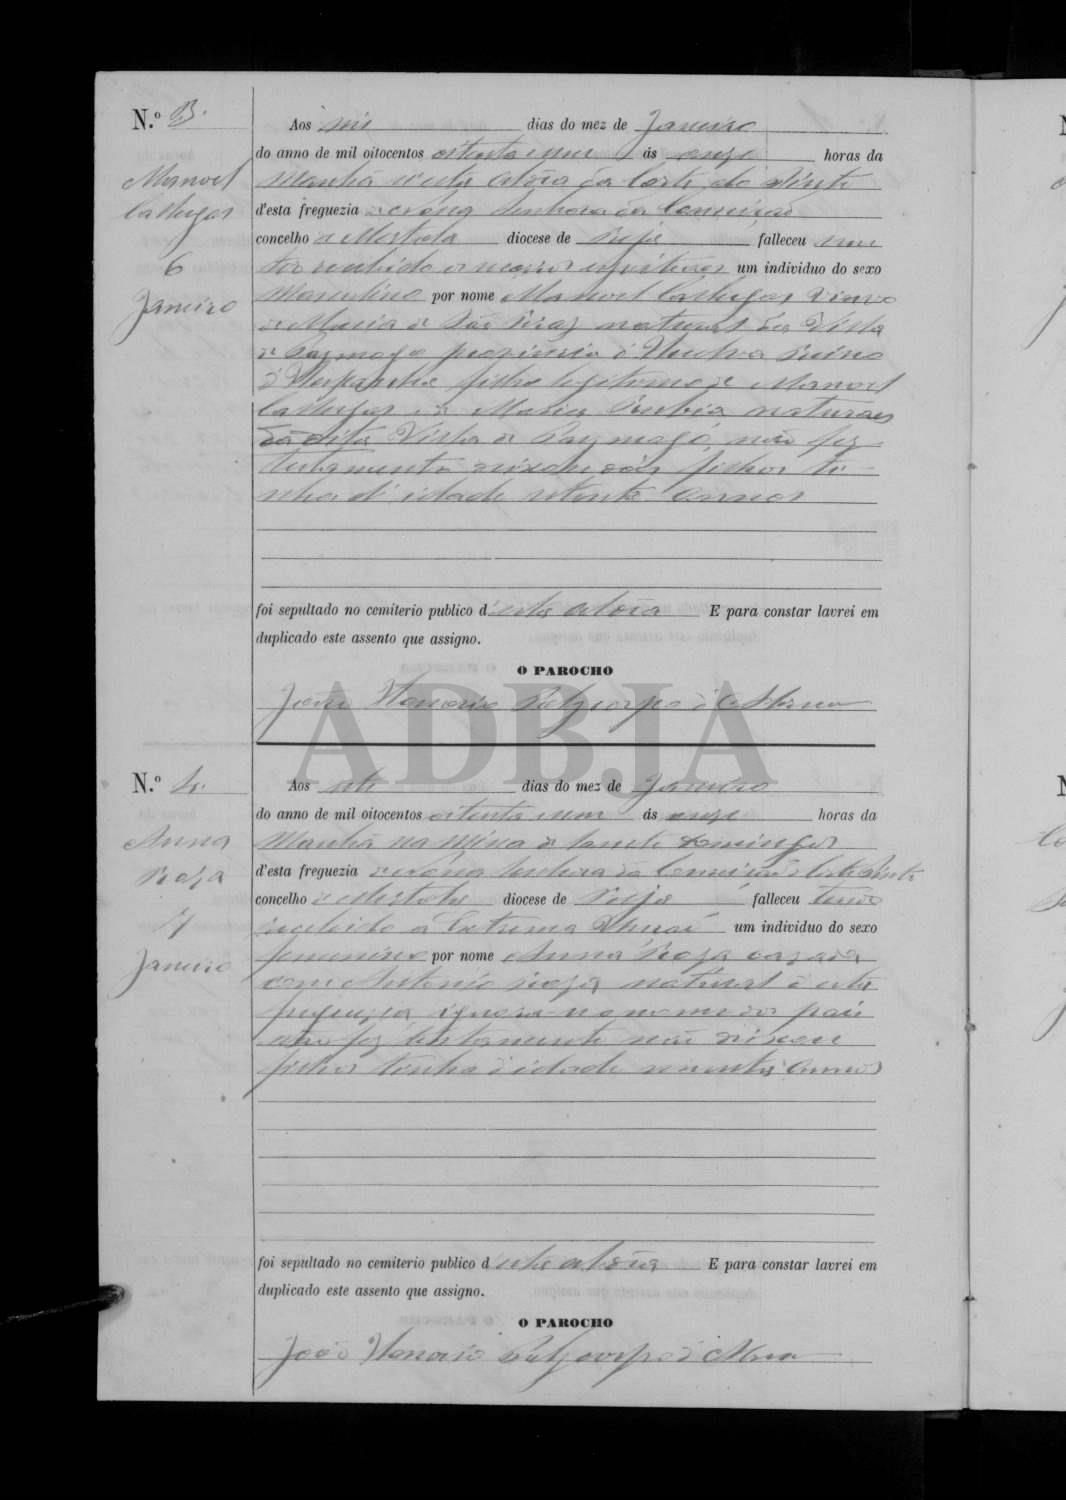 N.º 3.
Manoel
Castegas
6
Janeiro
Aos seis dias do mez de Janeiro
do anno de mil oitocentos oitenta e um ás onze horas da
Manhã n'esta Aldeia da Corte do Pinto
d'esta freguezia de Nossa Senhora da Conceição
concelho de Mertola diocese de Beja falleceu
recebido os um individuo do sexo
Masculino por nome Manoel Castegas Viuvo
de Maria de São Braz natural da Villa
de Paymogo provincia d'Huelva Reino
d'Hespanha filho legitimo de Manoel
Castegas e de Maria naturaes
da dita Villa de Paymogo, não fez
testamento deixou dois filhos ti-
nha d'idade setenta annos
foi sepultado no cemiterio publico d'esta aldeia E para constar lavrei em
duplicado este assento que assigno.
O PAROCHO
João Honorio
ADBJA
N.º 4.
Anna
Roza
7
Janeiro
Aos sete dias do mez de Janeiro
do anno de mil oitocentos oitenta e um ás onze horas da
Manhã na Mina de Domingos
d'esta freguezia de Nossa Senhora da Conceição
concelho de Mertola diocese de Beja falleceu tendo
recebido a Extrema um individuo do sexo
femenino por nome Anna Roza cazada
com Antonio Roza natural d'esta
freguezia ignora-se o nome dos paes
não fez testamento não deixou
filhos tinha d'idade annos
foi sepultado no cemiterio publico d'esta aldeia E para constar lavrei em
duplicado este assento que assigno.
O PAROCHO
João Honorio